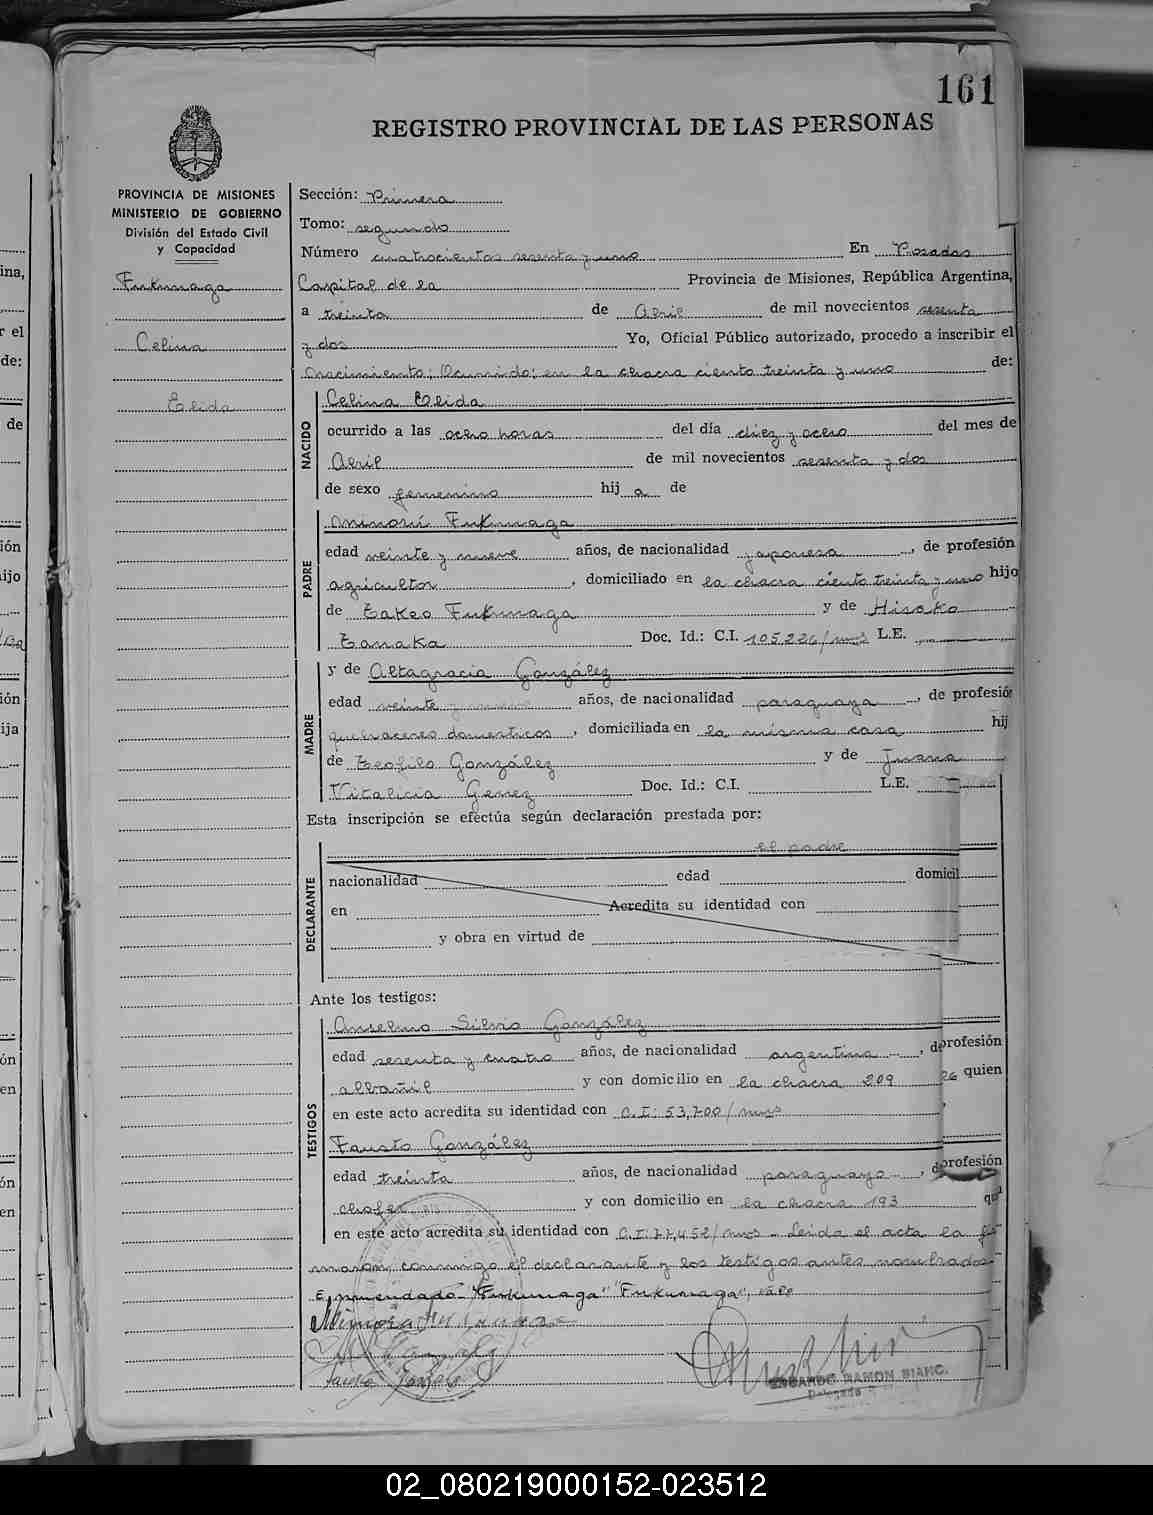 161
REGISTRO PROVINCIAL DE LAS PERSONAS
PROVINCIA DE MISIONES
MINISTERIO DE GOBIERNO
División del Estado Civil
y Capacidad
Fukunaga
Celina
Elida
Sección: Primera
Tomo: segundo
Número cuatrocientos sesenta y uno En Posadas
Capital de la Provincia de Misiones, República Argentina,
a treinta de Abril de mil novecientos sesenta
y dos Yo, Oficial Público autorizado, procedo a inscribir el
nacimiento; Ocurrido; en la chacra ciento treinta y uno de:
NACIDO
Celina Elida
ocurrido a las ocho horas del día diez y ocho del mes de
Abril de mil novecientos sesenta y dos
de sexo femenino hij a de
PADRE
Minorú Fukunaga
edad veinte y nueve años, de nacionalidad japonesa, de profesión
agricultor, domiciliado en la chacra ciento treinta y uno hijo
de Takeo Fukunaga y de Hisako
Tanaka Doc. Id.: C.I. 105.226/mnes L.E.
MADRE
y de Altagracia González
edad veinte y nueve años, de nacionalidad paraguaya, de profesión
quehaceres domésticos, domiciliada en la misma casa hij
de Teofilo González y de Juana
Vitalicia Genez Doc. Id.: C.I. L.E.
Esta inscripción se efectúa según declaración prestada por:
DECLARANTE
el padre
nacionalidad edad domicil
en Acredita su identidad con
y obra en virtud de
Ante los testigos:
TESTIGOS
Anselmo Silvio González
edad sesenta y cuatro años, de nacionalidad argentina, de profesión
albañil y con domicilio en la chacra 209 quien
en este acto acredita su identidad con C.I: 53,700/mnes
Fausto González
edad treinta años, de nacionalidad paraguayo, de profesión
chofer y con domicilio en la chacra 193
en este acto acredita su identidad con C.I: 77,452/mnes - Leida el acta la fir
maron conmigo el declarante y los testigos antes nombrados-
Enmendado "Fukunaga" "Fukunaga", vale
Fausto
RAMON BIANC
02_080219000152-023512